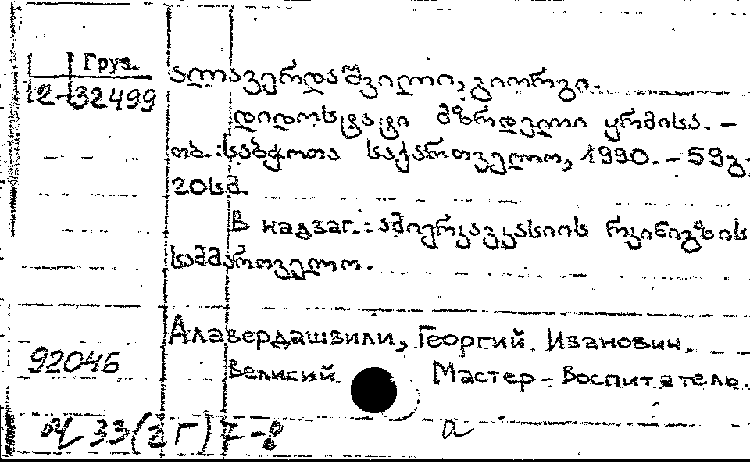 Груз.
2-32499
ალავერდაშვილი, გიორგი.
დიდოსტატი მზრდელი ყრმისა. –
თბ.: საბჭოთა საქართველო, 1990. – 59გ;
20სმ.
В надзаг.: ამიერკავკასიის რკინიგზის
სამმართველო.
Алавердашвили, Георгий Иванович.
92046 Великий Мастер – Воспитатель.
33(2Г)7-8 а